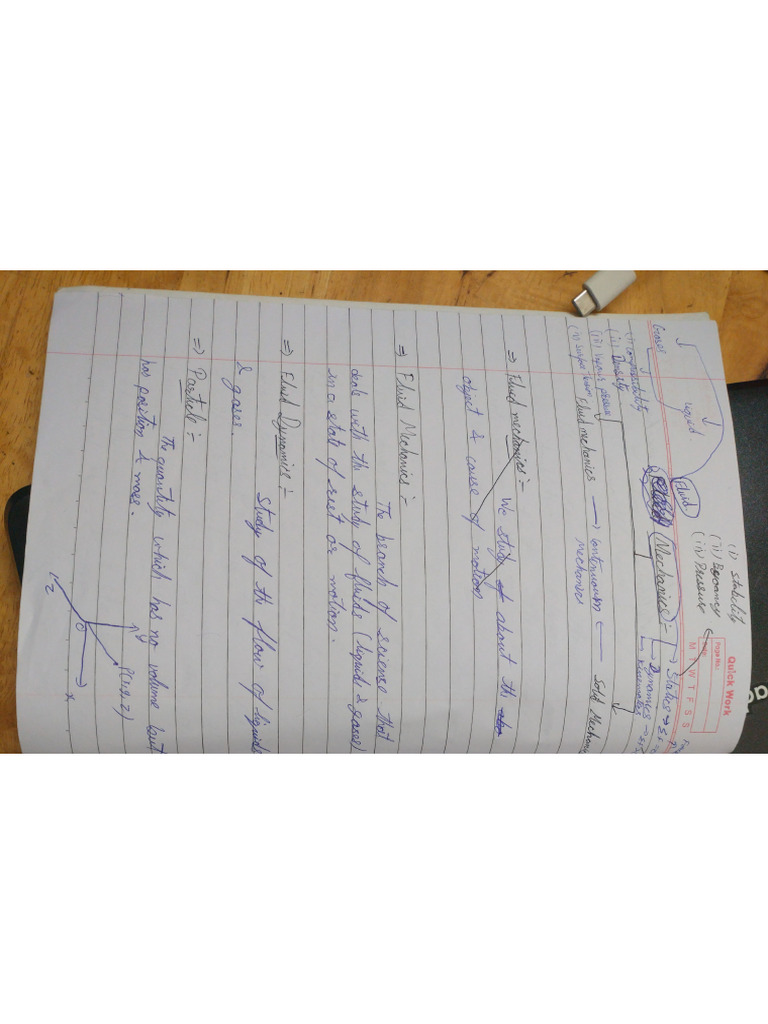 Quick Work
Page No.:
Date
M T W T F S S
(i) Stability
(ii) Buoyancy
(iii) Pressure
Fluid
Mechanics :-
→ Statics →
→ Dynamics →
→ Kinematics
Liquid
Gases
(i) Compressibility
(ii) Density
(iii) Vapour pressure
Fluid mechanics → Continuum ← Solid Mechanics
Mechanics
⇒ Fluid mechanics :- We study about the
object & cause of motion
⇒ Fluid Mechanics :-
The branch of science that
deals with the study of fluids (liquid & gases)
in a state of rest or motion.
⇒ Fluid Dynamics :-
Study of the flow of liquids
& gases.
⇒ Particle :-
The quantity which has no volume but
has position & mass.
y
P(x,y,z)
O
x
z